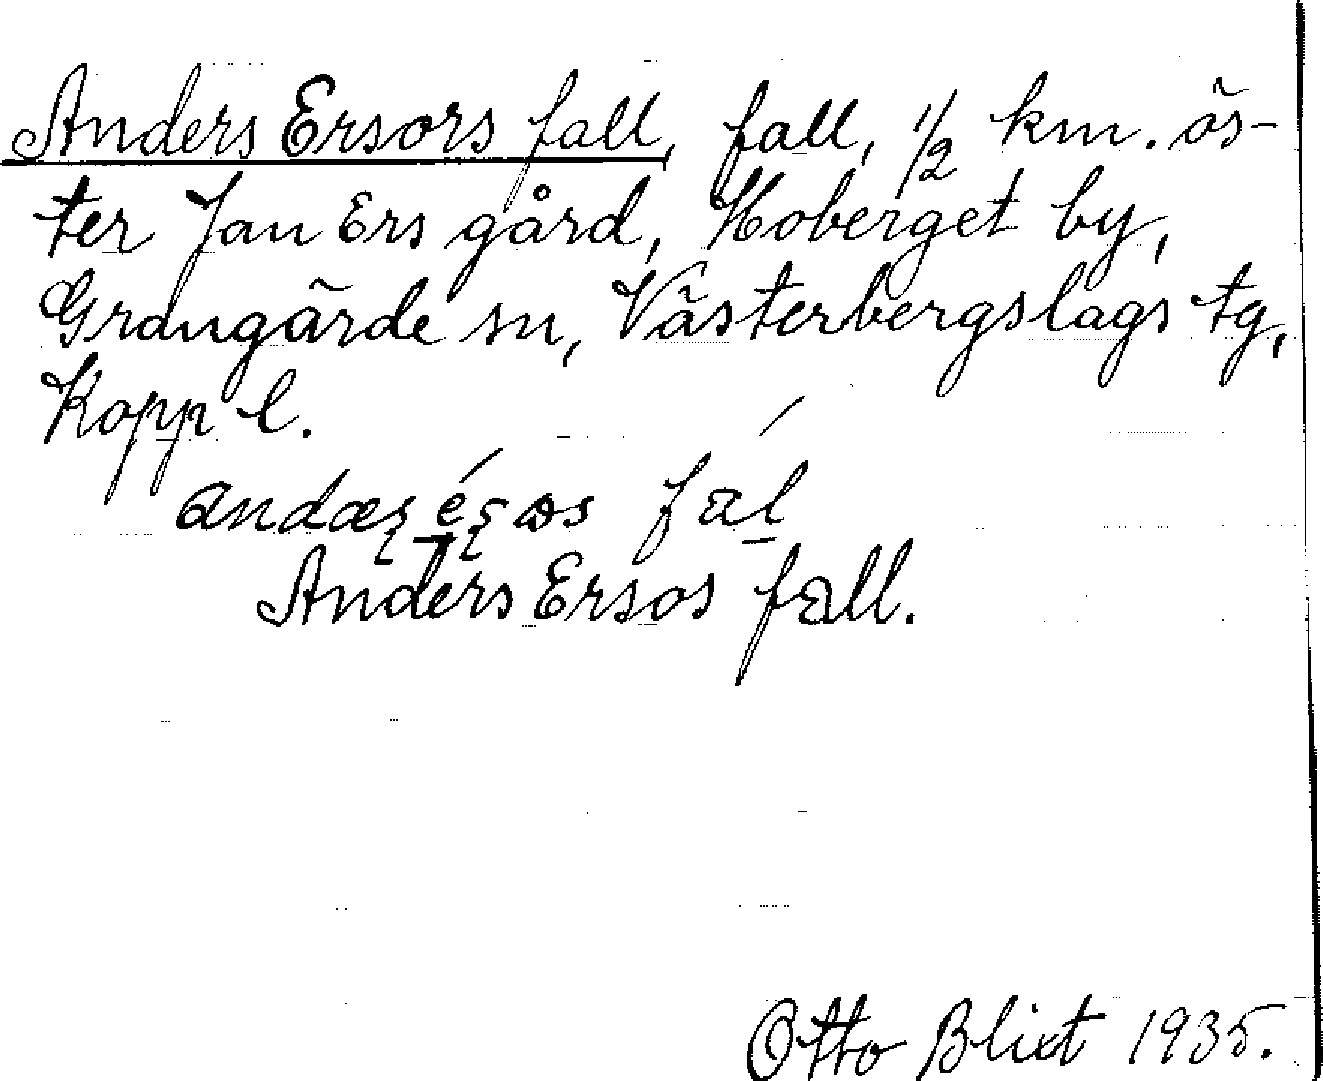 Anders Ersors fall, fall, 1/2 km. ös-
ter Jan Ers gård, Hoberget by,
Grangärde sn, Västerbergslags tg,
Kopp l.
fal
Anders Ersos fall.
Otto Blixt 1935.